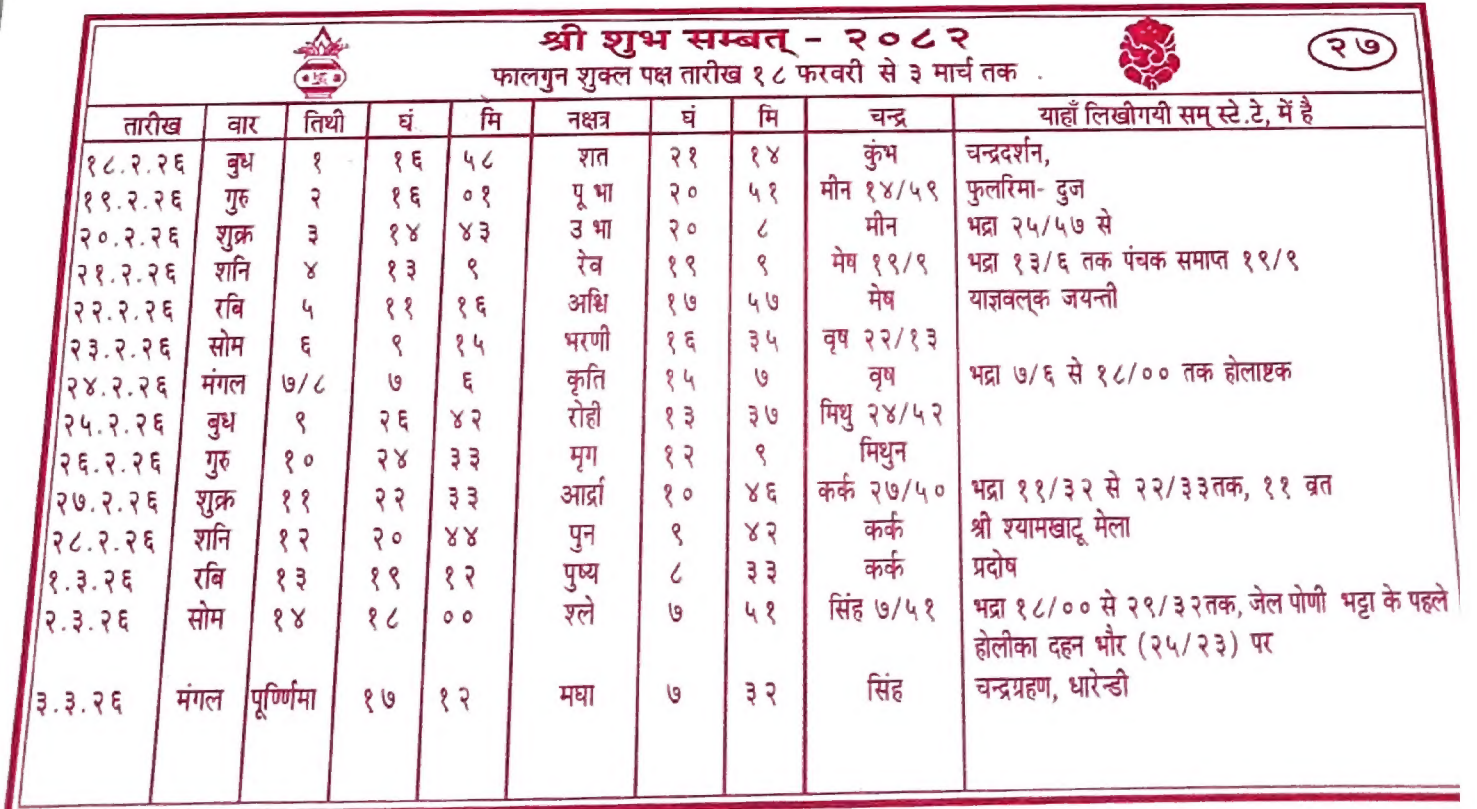 श्री शुभ सम्बत् - २०८२
२७
फालगुन शुक्ल पक्ष तारीख १८ फरवरी से ३ मार्च तक .
तारीख वार तिथी घं मि नक्षत्र घं मि चन्द्र याहाँ लिखीगयी सम् स्टे.टे, में है
१८.२.२६ बुध १ १६ ५८ शत २१ १४ कुंभ चन्द्रदर्शन,
१९.२.२६ गुरु २ १६ ०१ पू भा २० ५१ मीन १४/५९ फुलरिमा- दुज
२०.२.२६ शुक्र ३ १४ ४३ उ भा २० ८ मीन भद्रा २५/५७ से
२१.२.२६ शनि ४ १३ ९ रेव १९ ९ मेष १९/९ भद्रा १३/६ तक पंचक समाप्त १९/९
२२.२.२६ रबि ५ ११ १६ अश्वि १७ ५७ मेष याज्ञवल्क जयन्ती
२३.२.२६ सोम ६ ९ १५ भरणी १६ ३५ वृष २२/१३
२४.२.२६ मंगल ७/८ ७ ६ कृति १५ ७ वृष भद्रा ७/६ से १८/०० तक होलाष्टक
२५.२.२६ बुध ९ २६ ४२ रोही १३ ३७ मिथु २४/५२
२६.२.२६ गुरु १० २४ ३३ मृग १२ ९ मिथुन
२७.२.२६ शुक्र ११ २२ ३३ आर्द्रा १० ४६ कर्क २७/५० भद्रा ११/३२ से २२/३३तक, ११ व्रत
२८.२.२६ शनि १२ २० ४४ पुन ९ ४२ कर्क श्री श्यामखाटू मेला
१.३.२६ रबि १३ १९ १२ पुष्य ८ ३३ कर्क प्रदोष
२.३.२६ सोम १४ १८ ०० श्ले ७ ५१ सिंह ७/५१ भद्रा १८/०० से २९/३२तक, जेल पोणी भट्टा के पहले
होलीका दहन भौर (२५/२३) पर
३.३.२६ मंगल पूर्ण्णिमा १७ १२ मघा ७ ३२ सिंह चन्द्रग्रहण, धारेन्डी